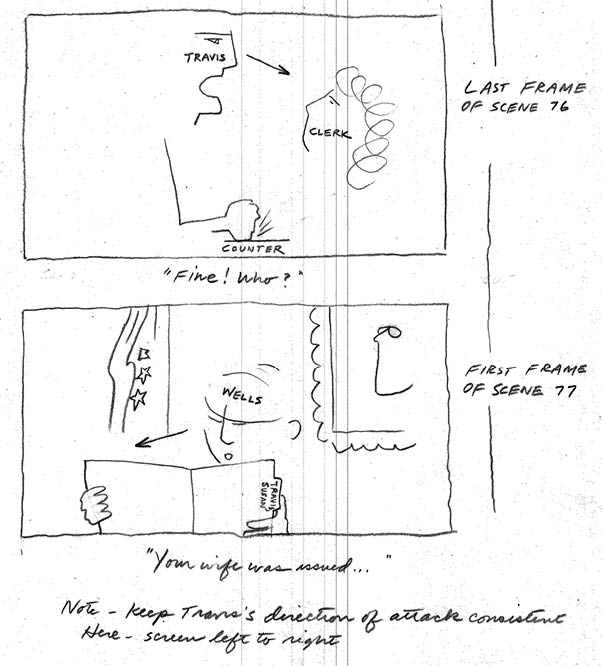 TRAVIS
CLERK
COUNTER
LAST FRAME
OF SCENE 76
"Fine! Who?"
WELLS
TRAVIS
SUSAN
FIRST FRAME
OF SCENE 77
"Your wife was issued... "
Note - keep Travis's direction of attack consistent
Here - screen left to right